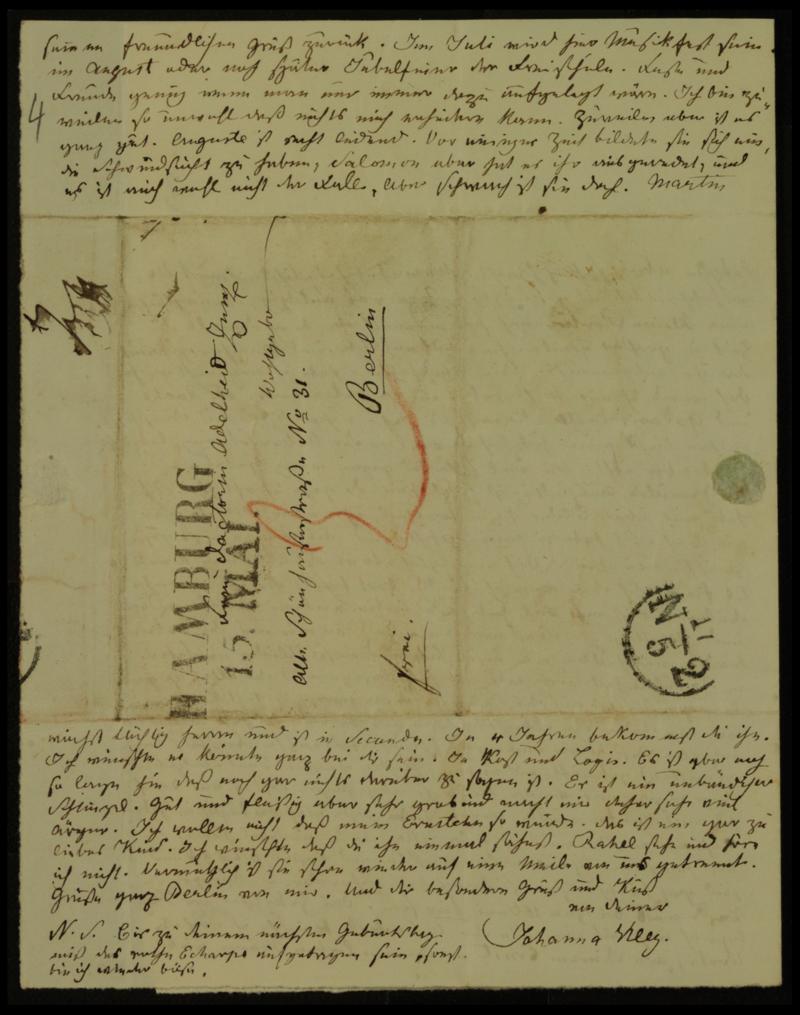 seinen freundlichen Gruß zurück. Im Juli wird hier Musikfest sein.
im August oder noch später Jubelfeier der Freischule. Feste und
4
Freude genug wenn man nur immer dazu aufgelegt wäre. Ich bin zu-
weilen so unwohl daß nichts mich erheitern kann. Zuweilen aber ist es
ganz gut. Auguste ist recht leidend. Vor einiger Zeit bildete sie sich ein,
die Schwindsucht zu haben, Salomon aber hat es ihr ausgeredet, und
es ist auch wohl nicht der Fall, aber schwach ist sie doch. Martin
HAMBURG
15. MAI.
Frau Doctorin Adelheid Zunz.
Wohlgeb
Alte Schönhauserstraße No 31.
Berlin
frei.
N 5/2
wächst tüchtig heran und ist in Secunda. In 4 Jahren bekommst du ihn.
Ich wünschte er könnte ganz bei dir sein. In Kost und Logis. Es ist aber noch
so lange hin daß noch gar nichts darüber zu sagen ist. Er ist ein unbändiger
Schlingel. Gut und fleißig aber sehr grob und macht mir daher sehr viel
Ärger. Ich wollte nicht daß mein so würde. das ist ein gar zu
liebes Kind. Ich wünschte daß du ihn einmal sähest. Rahel sehe und höre
ich nicht. Vermuthlich ist sie schon wieder auf eine Meile von uns getrennt.
Grüße ganz Berlin von mir. Und dir besondern Gruß und Kuß
von deiner
Johanna Kley.
N. S. Bis zu deinem nächsten Geburtstag
muß das rothe Echarpe aufgetragen sein, sonst
bin ich wieder böse.